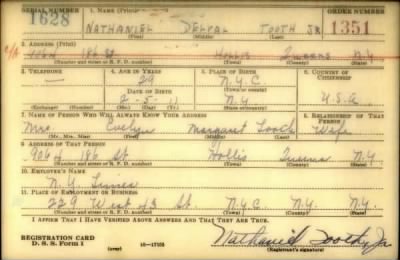 SERIAL NUMBER 1. NAME (Print) ORDER NUMBER
1628 NATHANIEL TOOTH JR 1351
(First) (Middle) (Last)
2. ADDRESS (Print)
186 St Hollis Queens N.Y.
(Number and street or R. F. D. number) (Town) (County) (State)
3. TELEPHONE 4. AGE IN YEARS 5. PLACE OF BIRTH 6. COUNTRY OF CITIZENSHIP
— 29 N.Y.C.
DATE OF BIRTH (Town or county)
2-5-11 N.Y. U.S.A.
(Exchange) (Number) (Mo.) (Day) (Yr.) (State or country)
7. NAME OF PERSON WHO WILL ALWAYS KNOW YOUR ADDRESS 8. RELATIONSHIP OF THAT PERSON
Mrs Evelyn Margaret Tooth Wife
(Mr., Mrs., Miss) (First) (Middle) (Last)
9. ADDRESS OF THAT PERSON
9064 186 St Hollis Queens N.Y.
(Number and street or R. F. D. number) (Town) (County) (State)
10. EMPLOYER'S NAME
N.Y. Times
11. PLACE OF EMPLOYMENT OR BUSINESS
229 West 43 St N.Y.C. N.Y. N.Y.
(Number and street or R. F. D. number) (Town) (County) (State)
I AFFIRM THAT I HAVE VERIFIED ABOVE ANSWERS AND THAT THEY ARE TRUE.
REGISTRATION CARD
D. S. S. Form 1 (over) 16—17105 Nathaniel Tooth, Jr.
(Registrant's signature)